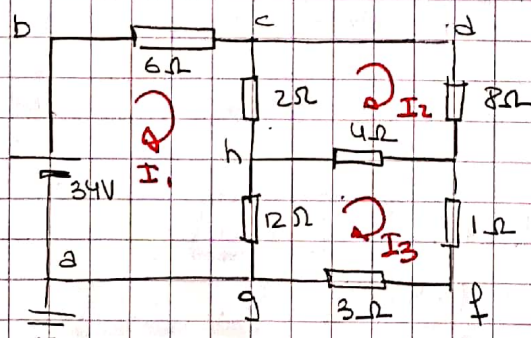 b c d
6Ω 2Ω I2 8Ω
4Ω
h
I1
34V 12Ω I3 1Ω
a
g 3Ω f